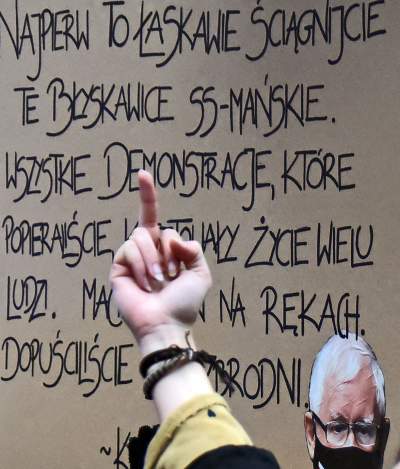 NAJPIERW TO ŁASKAWIE ŚCIĄGNIJCIE
TE BŁYSKAWICE SS-MAŃSKIE.
WSZYSTKIE DEMONSTRACJE, KTÓRE
POPIERALIŚCIE, ŻYCIE WIELU
LUDZI. NA RĘKACH.
DOPUŚCILIŚCIE